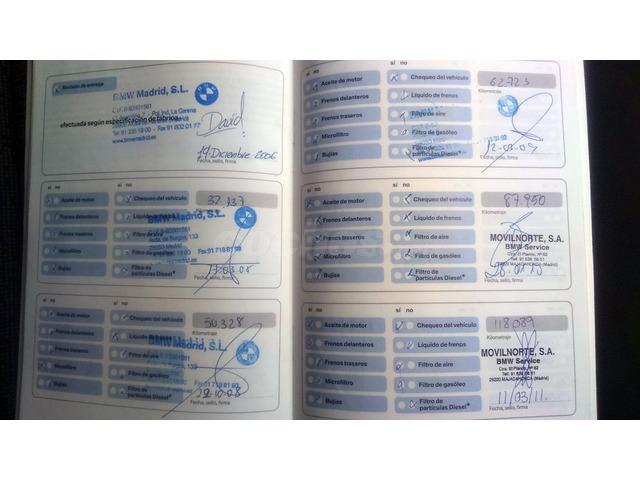 Revisión de entrega
BMW Madrid, S.L.
efectuada según especificación de fábrica.
www.bmwmadrid.es
David
19 Diciembre 2006
Fecha, sello, firma
sí no sí no
Aceite de motor Chequeo del vehículo 32,137
Frenos delanteros Líquido de frenos Kilometraje
Frenos traseros Filtro de aire
BMW Madrid, S.L.
Avda. de Burgos, 133
Microfiltro Filtro de gasóleo
Bujías Filtro de partículas Diesel*
Fecha, sello, firma
sí no sí no
Aceite de motor Chequeo del vehículo 50,328
Frenos delanteros Líquido de frenos Kilometraje
BMW Madrid, S.L.
Frenos traseros Filtro de aire
Microfiltro Filtro de gasóleo
Bujías Filtro de partículas Diesel*
Fecha, sello, firma
sí no sí no
Aceite de motor Chequeo del vehículo 62,723
Frenos delanteros Líquido de frenos Kilometraje
Frenos traseros Filtro de aire
Microfiltro Filtro de gasóleo
Bujías Filtro de partículas Diesel* 12-03-09
Fecha, sello, firma
sí no sí no
Aceite de motor Chequeo del vehículo 87,950
Frenos delanteros Líquido de frenos Kilometraje
Frenos traseros Filtro de aire
MOVILNORTE, S.A.
BMW Service
Microfiltro Filtro de gasóleo
Bujías Filtro de partículas Diesel*
Fecha, sello, firma
sí no sí no
Aceite de motor Chequeo del vehículo 118,089
Frenos delanteros Líquido de frenos Kilometraje
Frenos traseros Filtro de aire
MOVILNORTE, S.A.
BMW Service
Ctra. El Plantío, Nº 62
28220 MAJADAHONDA (Madrid)
Microfiltro Filtro de gasóleo
Bujías Filtro de partículas Diesel* 11/03/11.
Fecha, sello, firma